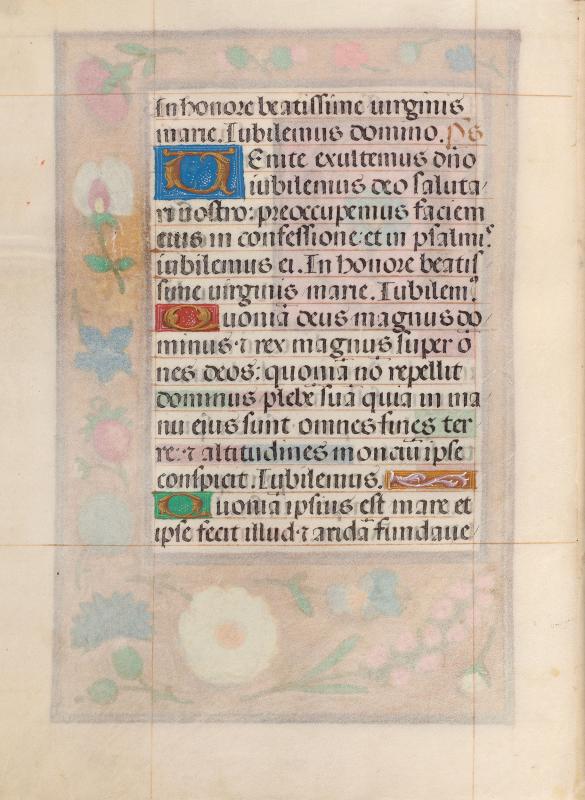 In honore beatissime uirginis
marie. Iubilemus domino. Ps
Uenite exultemus dño
iubilemus deo saluta
ri nostro: preoccupemus faciem
eius in confessione: et in psalmis
iubilemus ei. In honore beatis
sime uirginis marie. Iubilem9
Quoniā deus magnus do
minus ⁊ rex magnus super o
nes deos: quoniā nō repellit
dominus plebē suā quia in ma
nu eius sunt omnes fines ter
re: ⁊ altitudines monciū ipse
conspicit. Iubilemus.
Quoniā ipsius est mare et
ipse fecit illud ⁊ aridā fundaue